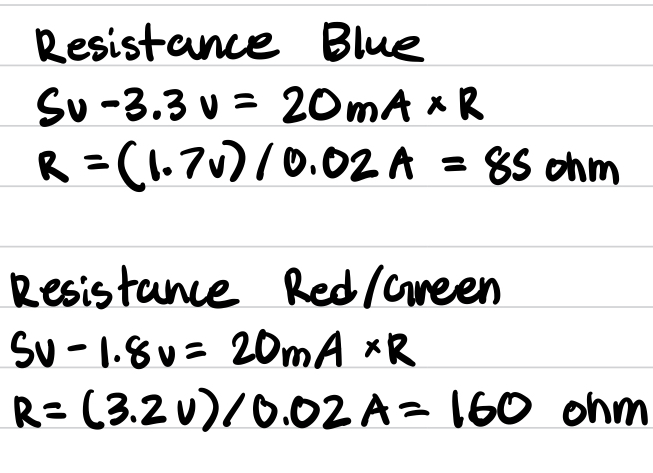 Resistance Blue
5v - 3.3v = 20mA × R
R = (1.7v) / 0.02A = 85 ohm
Resistance Red/Green
5v - 1.8v = 20mA × R
R = (3.2v) / 0.02A = 160 ohm